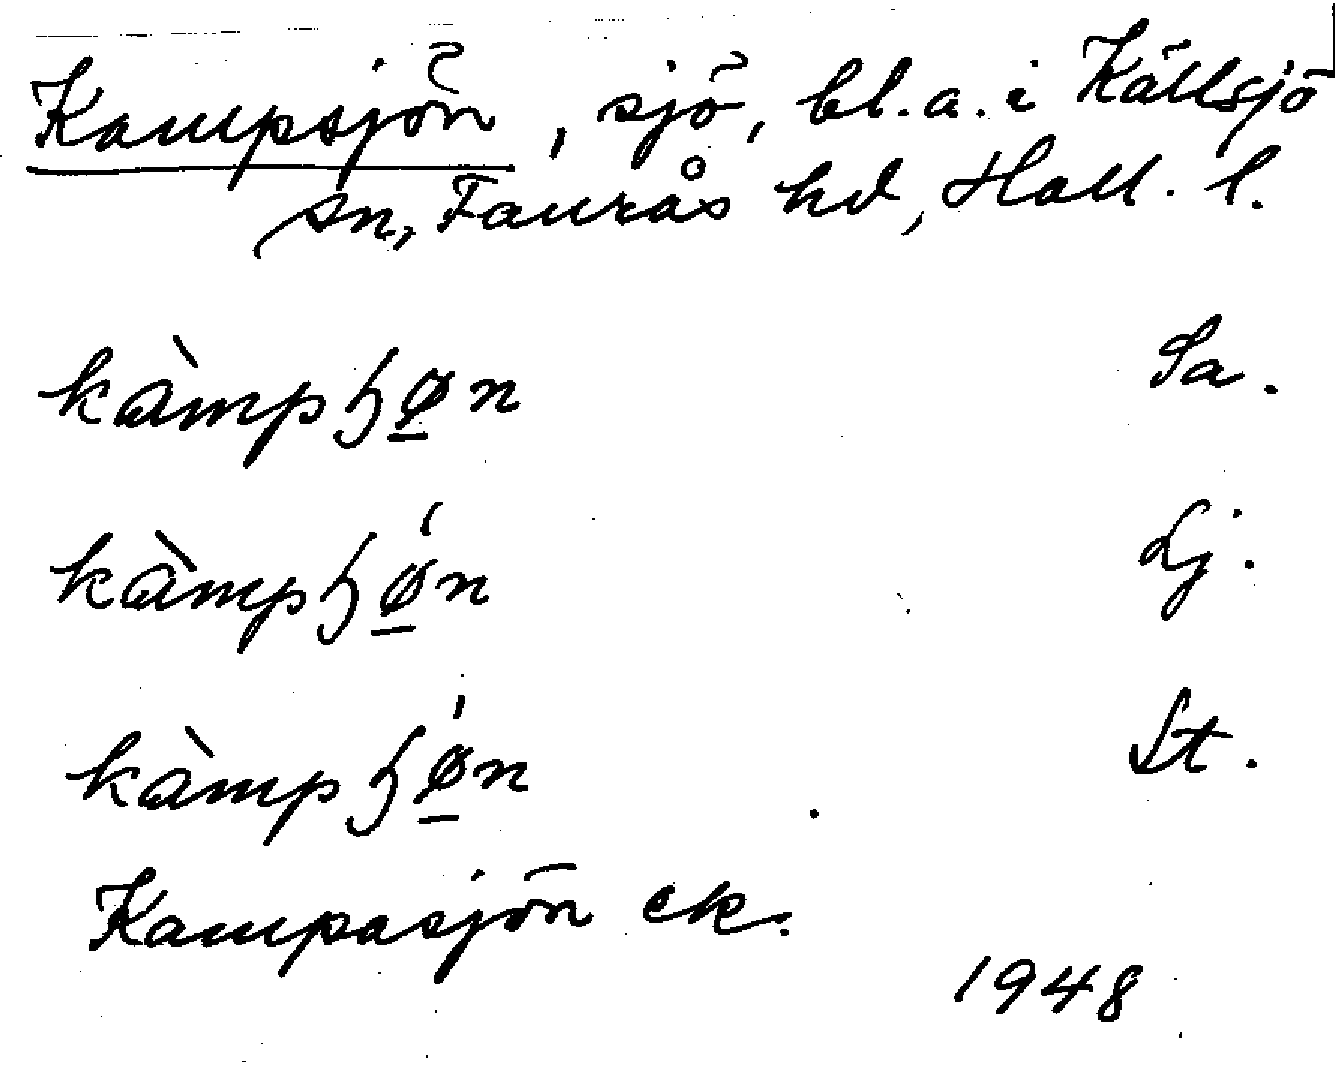 Kampsjön, sjö, bl.a. i Källsjö
sn, Faurås hd, Hall. l.
kàmpꜧø̠n Sa.
kàmpꜧǿ̠n Lj.
kàmpꜧǿ̠n St.
Kampasjön ek.
1948